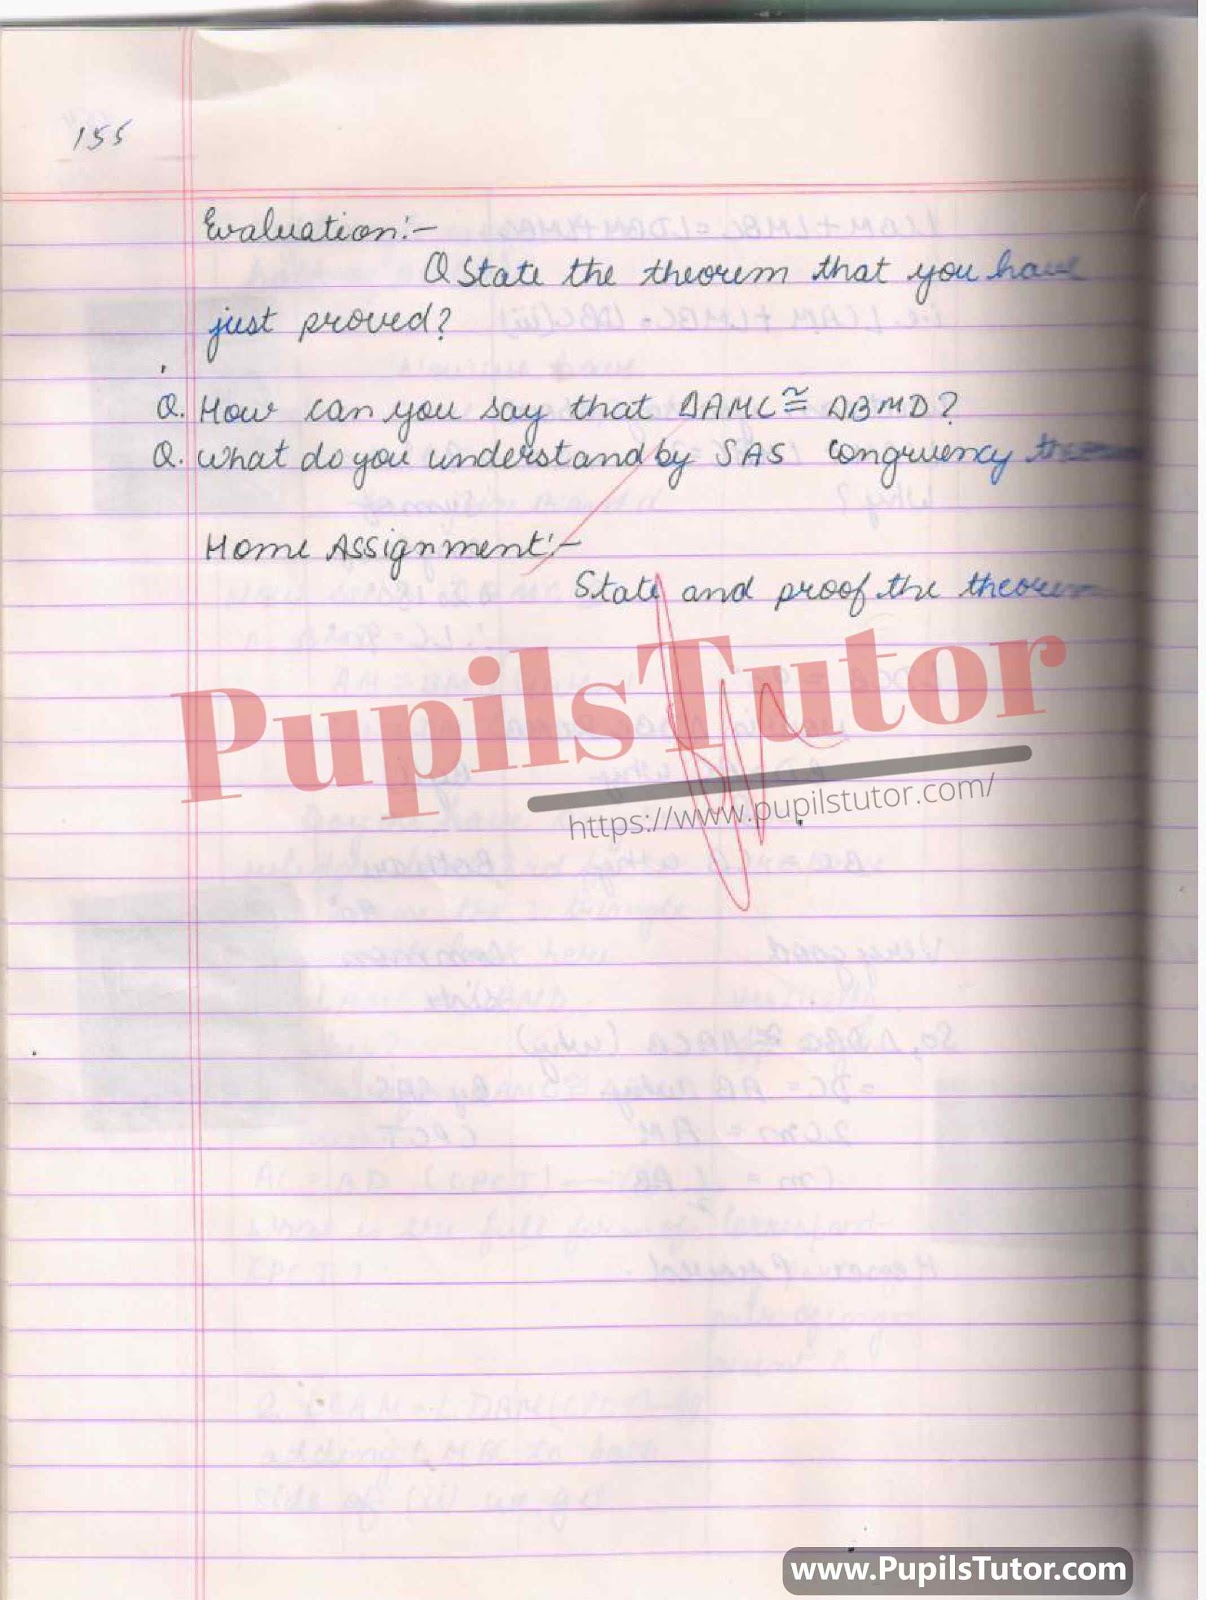 155
Evaluation:-
Q State the theorem that you have
just proved?
Q. How can you say that ΔAMC ≅ ΔBMD?
Q. What do you understand by SAS congruency
Home Assignment:-
State and proof the theorem
PupilsTutor
https://www.pupilstutor.com/
www.PupilsTutor.com